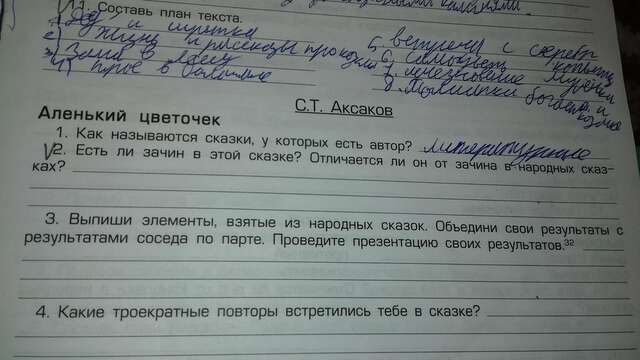 11. Составь план текста.
1) Дед и сиротка
2) Жизнь и рассказы про козла
3) Зима в лесу
4) Трое в балагане
5. встреча с серебр
6. Самоцветы копытца
7. исчезновение Мурёнки
8. Мальчики и козлик
С.Т. Аксаков
Аленький цветочек
1. Как называются сказки, у которых есть автор? литературные
V2. Есть ли зачин в этой сказке? Отличается ли он от зачина в народных сказ-
ках?
3. Выпиши элементы, взятые из народных сказок. Объедини свои результаты с
результатами соседа по парте. Проведите презентацию своих результатов.³²
4. Какие троекратные повторы встретились тебе в сказке?